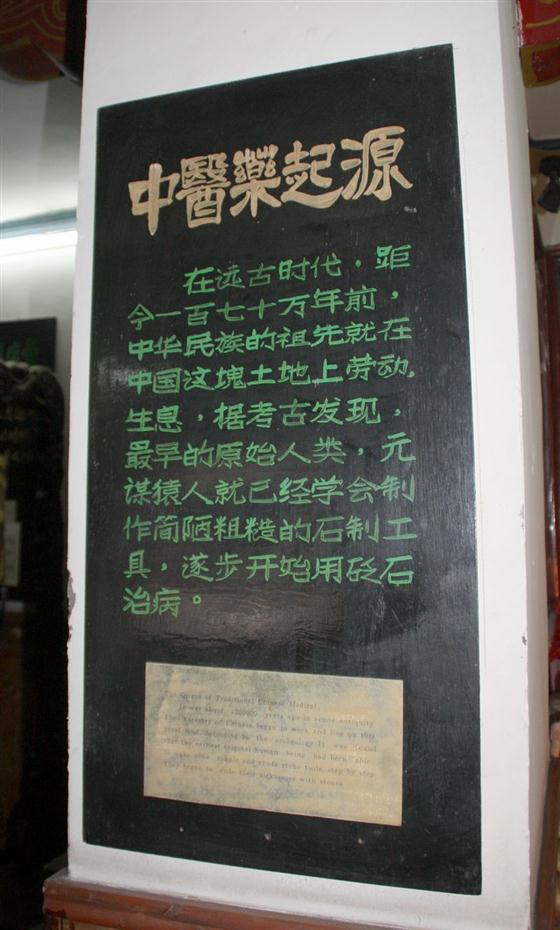 中醫藥起源
在远古时代，距
今一百七十万年前，
中华民族的祖先就在
中国这块土地上劳动，
生息，据考古发现，
最早的原始人类，元
谋猿人就已经学会制
作简陋粗糙的石制工
具，逐步开始用砭石
治病。
The Origin of Traditional Chinese Medical.
It was about years ago in remote antiquity
The of Chinese began to work and live on this
great land. According to the It was found
that the earliest original human being had been able
to make some simple and crude stone tools, step by step
They began to sickness with stones